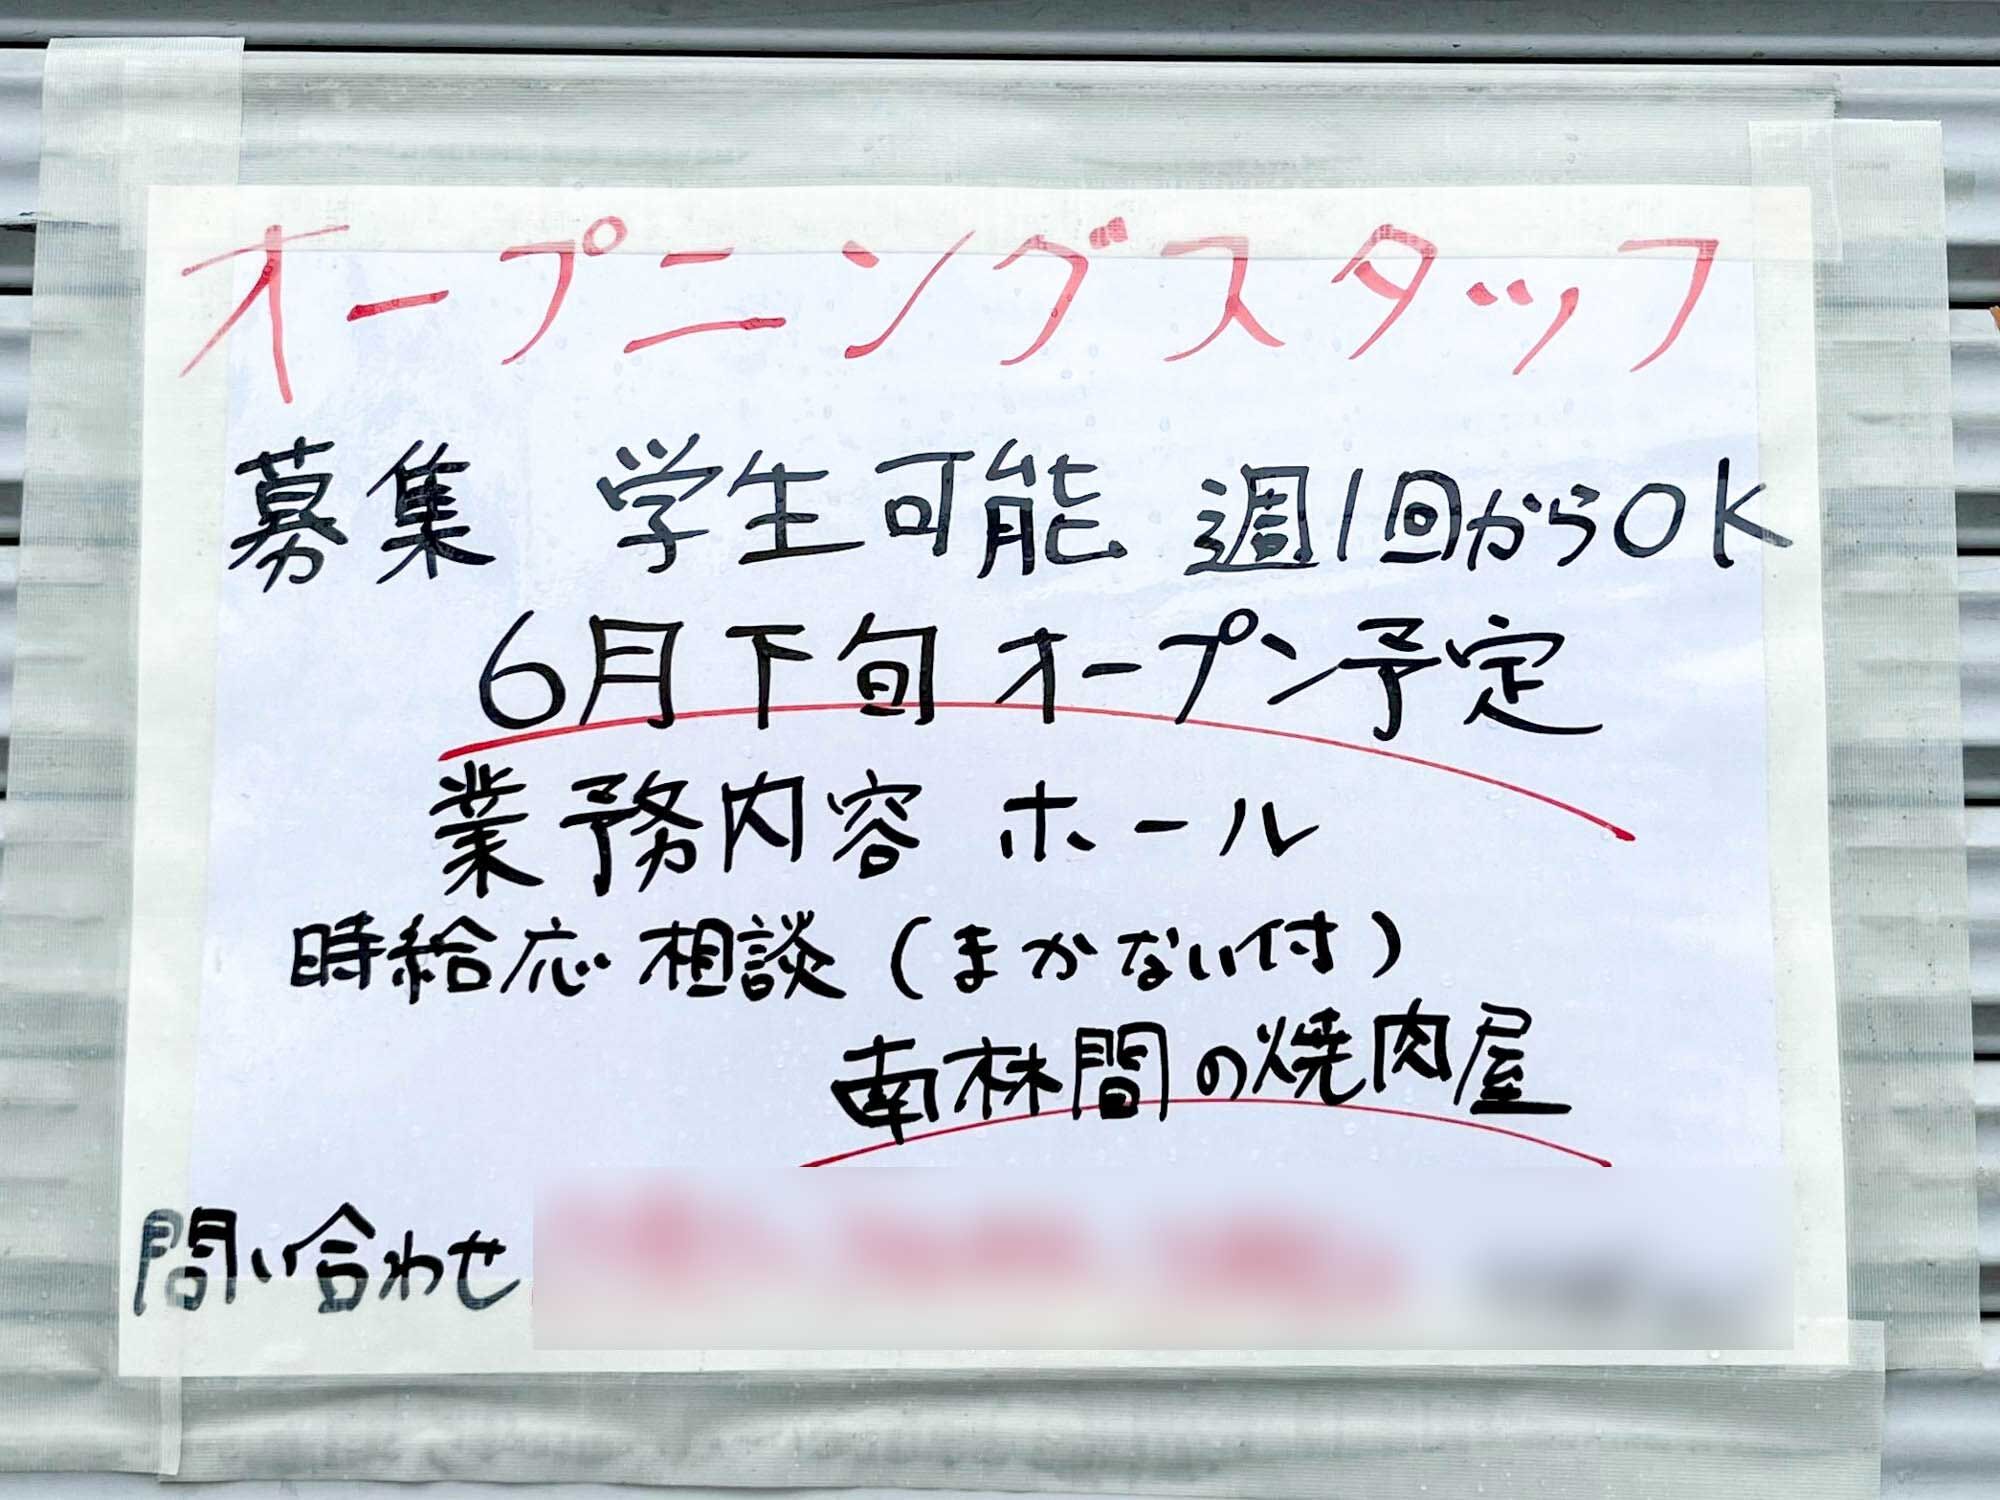 オープニングスタッフ
募集 学生可能 週1回からOK
6月下旬オープン予定
業務内容 ホール
時給応相談(まかない付)
南林間の焼肉屋
問い合わせ